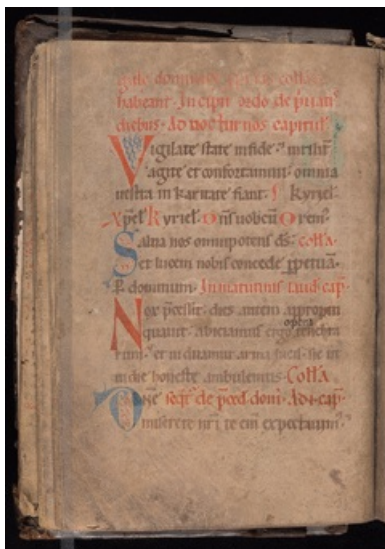 habeant. Incipit ordo de
diebus. Ad nocturnos capitul
Vigilate state in fide. uirilit
agite et confortamini. omnia
uestra in karitate fiant. Kyriel.
Xpel Kyriel. Dns uobcu Orem.
Salua nos omnipotens ds. colta.
et lucem nobis concede ppetua.
P. dominum. In matutinis laud cap.
Nox pcessit. dies autem appropin
quauit. abiciamus ergo opera tenebra
rum. et induamur arma lucis. sic ut
in die honeste ambulemus. Colta
One de pced domi. Ad i cap.
miserere nri te eni expectauim